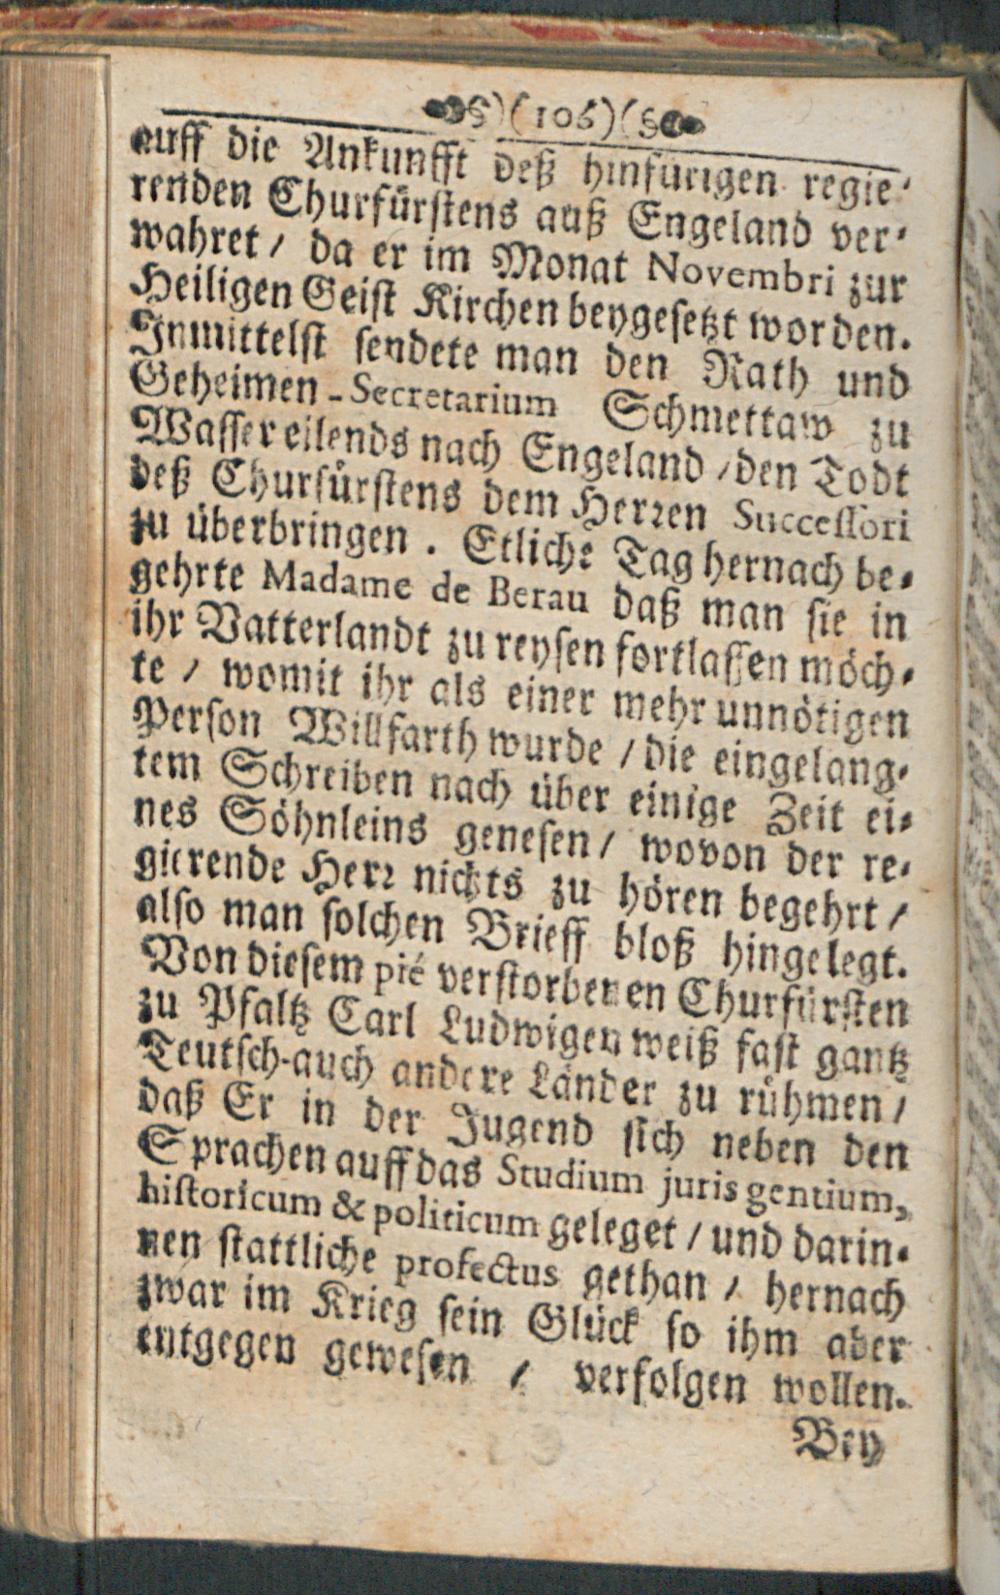 §)(106)(§
auff die Ankunfft deß hinfürigen regie-
renden Churfürstens auß Engeland ver-
wahret / da er im Monat Novembri zur
Heiligen Geist Kirchen beygesetzt worden.
Inmittelst sendete man den Rath und
Geheimen-Secretarium Schmettaw zu
Wasser eilends nach Engeland / den Todt
deß Churfürstens dem Herren Successori
zu überbringen. Etliche Tag hernach be-
gehrte Madame de Berau daß man sie in
ihr Vatterlandt zu reysen fortlassen möch-
te / womit ihr als einer mehr unnötigen
Person Willfarth wurde / die eingelang-
tem Schreiben nach über einige Zeit ei-
nes Söhnleins genesen / wovon der re-
gierende Herr nichts zu hören begehrt /
also man solchen Brieff bloß hingelegt.
Von diesem pié verstorbenen Churfürsten
zu Pfaltz Carl Ludwigen weiß fast gantz
Teutsch-auch andere Länder zu rühmen /
daß Er in der Jugend sich neben den
Sprachen auff das Studium juris gentium,
historicum & politicum geleget / und darin-
nen stattliche profectus gethan / hernach
zwar im Krieg sein Glück so ihm aber
entgegen gewesen / verfolgen wollen.
Bey